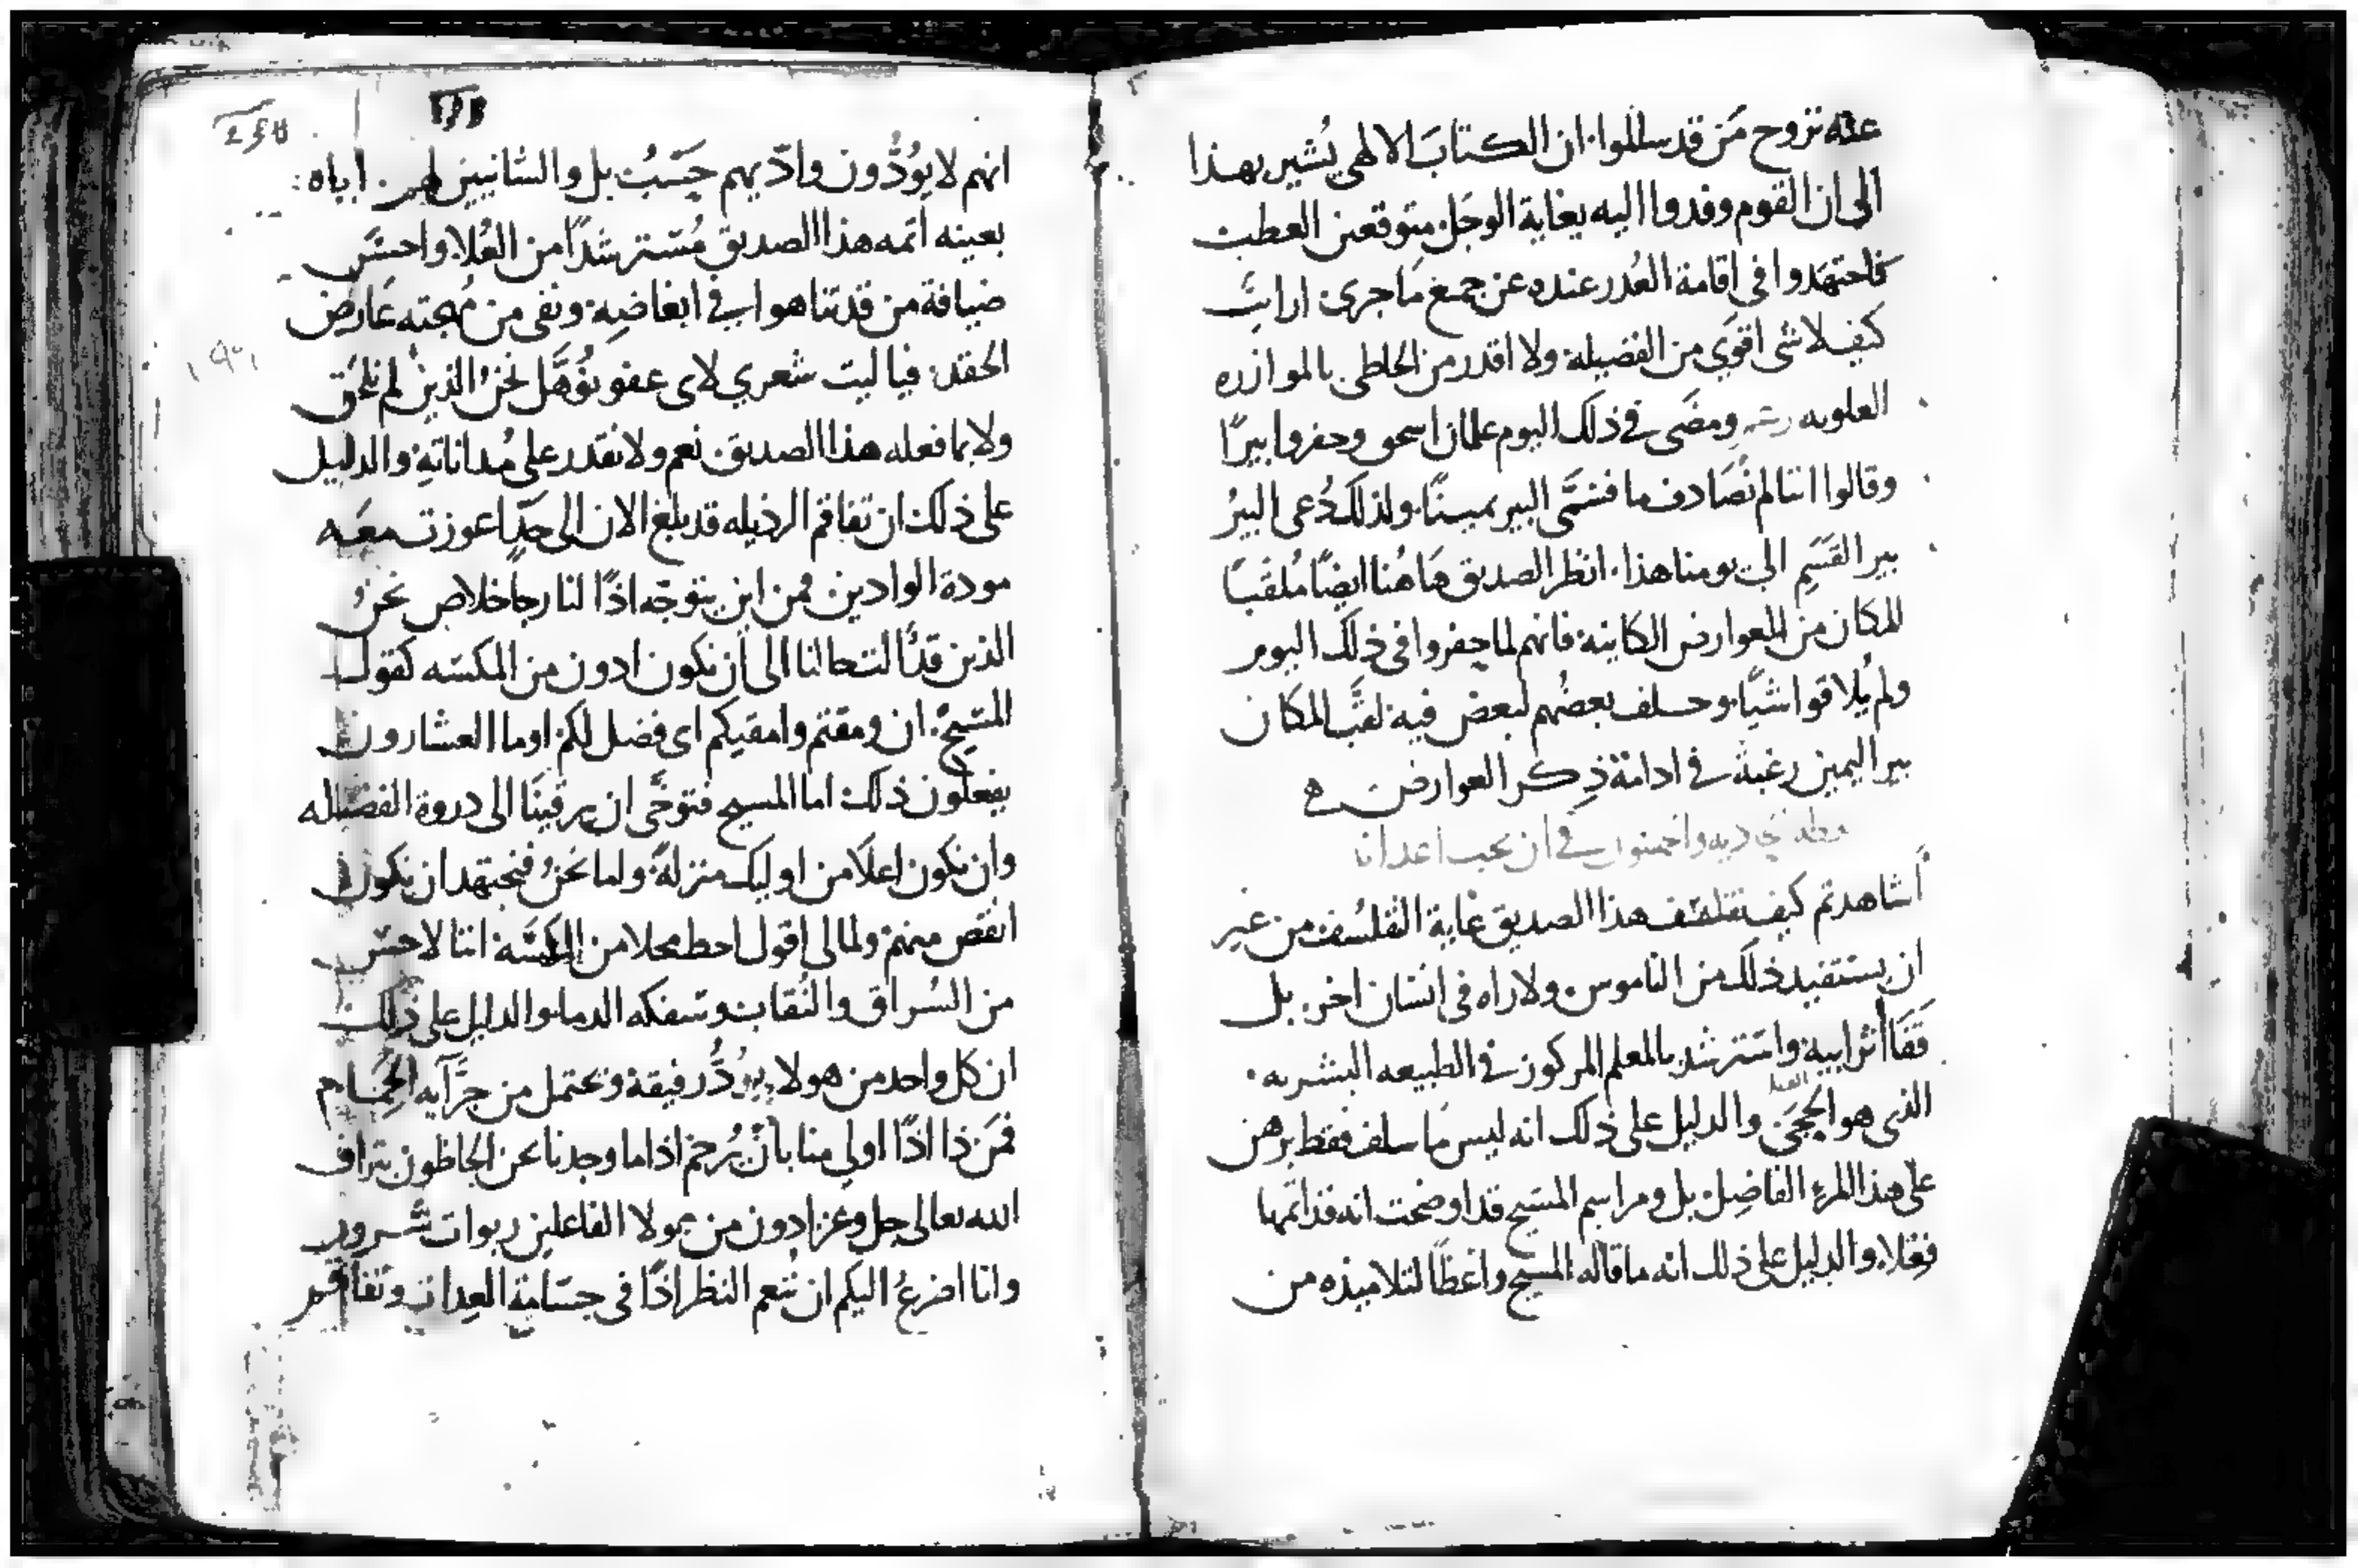 عنه نزوح من قد سللوا. ان الكتابَ الالهي يُشير بهذا
الى ان القوم وفدوا اليه بغاية الوجَل متوقعين العطب
فاحتهدوا في اقامة العُدر عنده عن جميع مَا جرى. ارايتَ
كيف لا شى اقوَي من الفضيلة. ولا اقدر من الحاظى بالموازره
العلويه ومضَى في ذلك اليوم غلمان اسحق وحفروا بيرًا
وقالوا اننا لم نصَادف ما فسَمَّى البير يمينًا. ولذلك دُعى البيرُ
بير القَسَمِ الي يومنا هذا. انظر الصديق هَاهُنا ايضًا مُلقبًا
للمكان من العوارض الكاينة. فانهم لما حفروا في ذلك اليوم
ولم يُلاقوا شيًا. وحلف بعضُهم لبعض فيه. لقبَّ المكان
بير اليمين رغبةً في ادامة ذِكر العوارض
في ان نحب اعدانا
أشاهدتم كيف تفلسف هذا الصديق غاية التفلسُف من غير
ان يستفيد ذلك من الناموس. ولا راه في انسَان اخر. بل
قَفَا أثر ابيه. واسترشد بالمعلم المركوز في الطبيعه البشريه.
الذي هو الحجَى والدليل على ذلك انه ليس مَا سلف فقط برهن
على هذا المرءِ الفاضِل. بل ومراسِم المسيح قد اوضحت انه قد اتمها
فِعْلاً. والدليل على ذلك انه ما قاله المسيح واعظًا لتلاميذه من
انهم لا يوُدُّون وادّيهم حَسْبُ بل والشانيين لهم. اياه
بعينه اتمه هذا الصديق مُسترشدًا من العُلا. واحسَن
ضيافة من قد تناهوا في ابغاضِه. ونفى من مُهجته عَارض
الحقد. فيا ليت شعري لاى عفو نوُهَّل نحنُ الذين لم نلحَق
ولا بما فعله هذا الصديق. نعم ولا نقدر على مُداناتهِ. والدليل
على ذلك ان تفاقم الرذيله قد بلغ الان الى حَدٍّ اعوزت معَه
مودة الوادين. فمن اين يتوجّه اذًا لنا رجا خلاص نحنُ
الذين قد الت حالنا الى أن نكون ادون من المكسَه كقول
المسَيحْ. ان ومقتم وامقيكم اى فضل لكم اوما العشارون
يفعلون ذلك. اما المسيح فتوخَّى ان يرقينَا الى دروة الفضيله
وان نكون اعلَا من اوليك منزلةً. واما نحنُ فنجتهد ان نكون
انقص منهم. ولما لى اقول احط محلا من المكسَه. اننا لاحسّ
من السُراق والنُقاب. وسَفكه الدما. والدليل على ذلك
ان كل واحد من هولا يوُدُّ رفيقهُ وحتمل من جرَّآيه الحِمَام
فمَن ذا اذًا اولي منا بأنْ يُرحم. اذا ما وجدنا نحن الحاظون بتراف
الله تعالى جل وعز ادون من هولا الفاعلين ربوات شرور
وانا اضرعُ اليكم ان نُنعم النظر اذًا في جسَامة العِداب وتفاقم